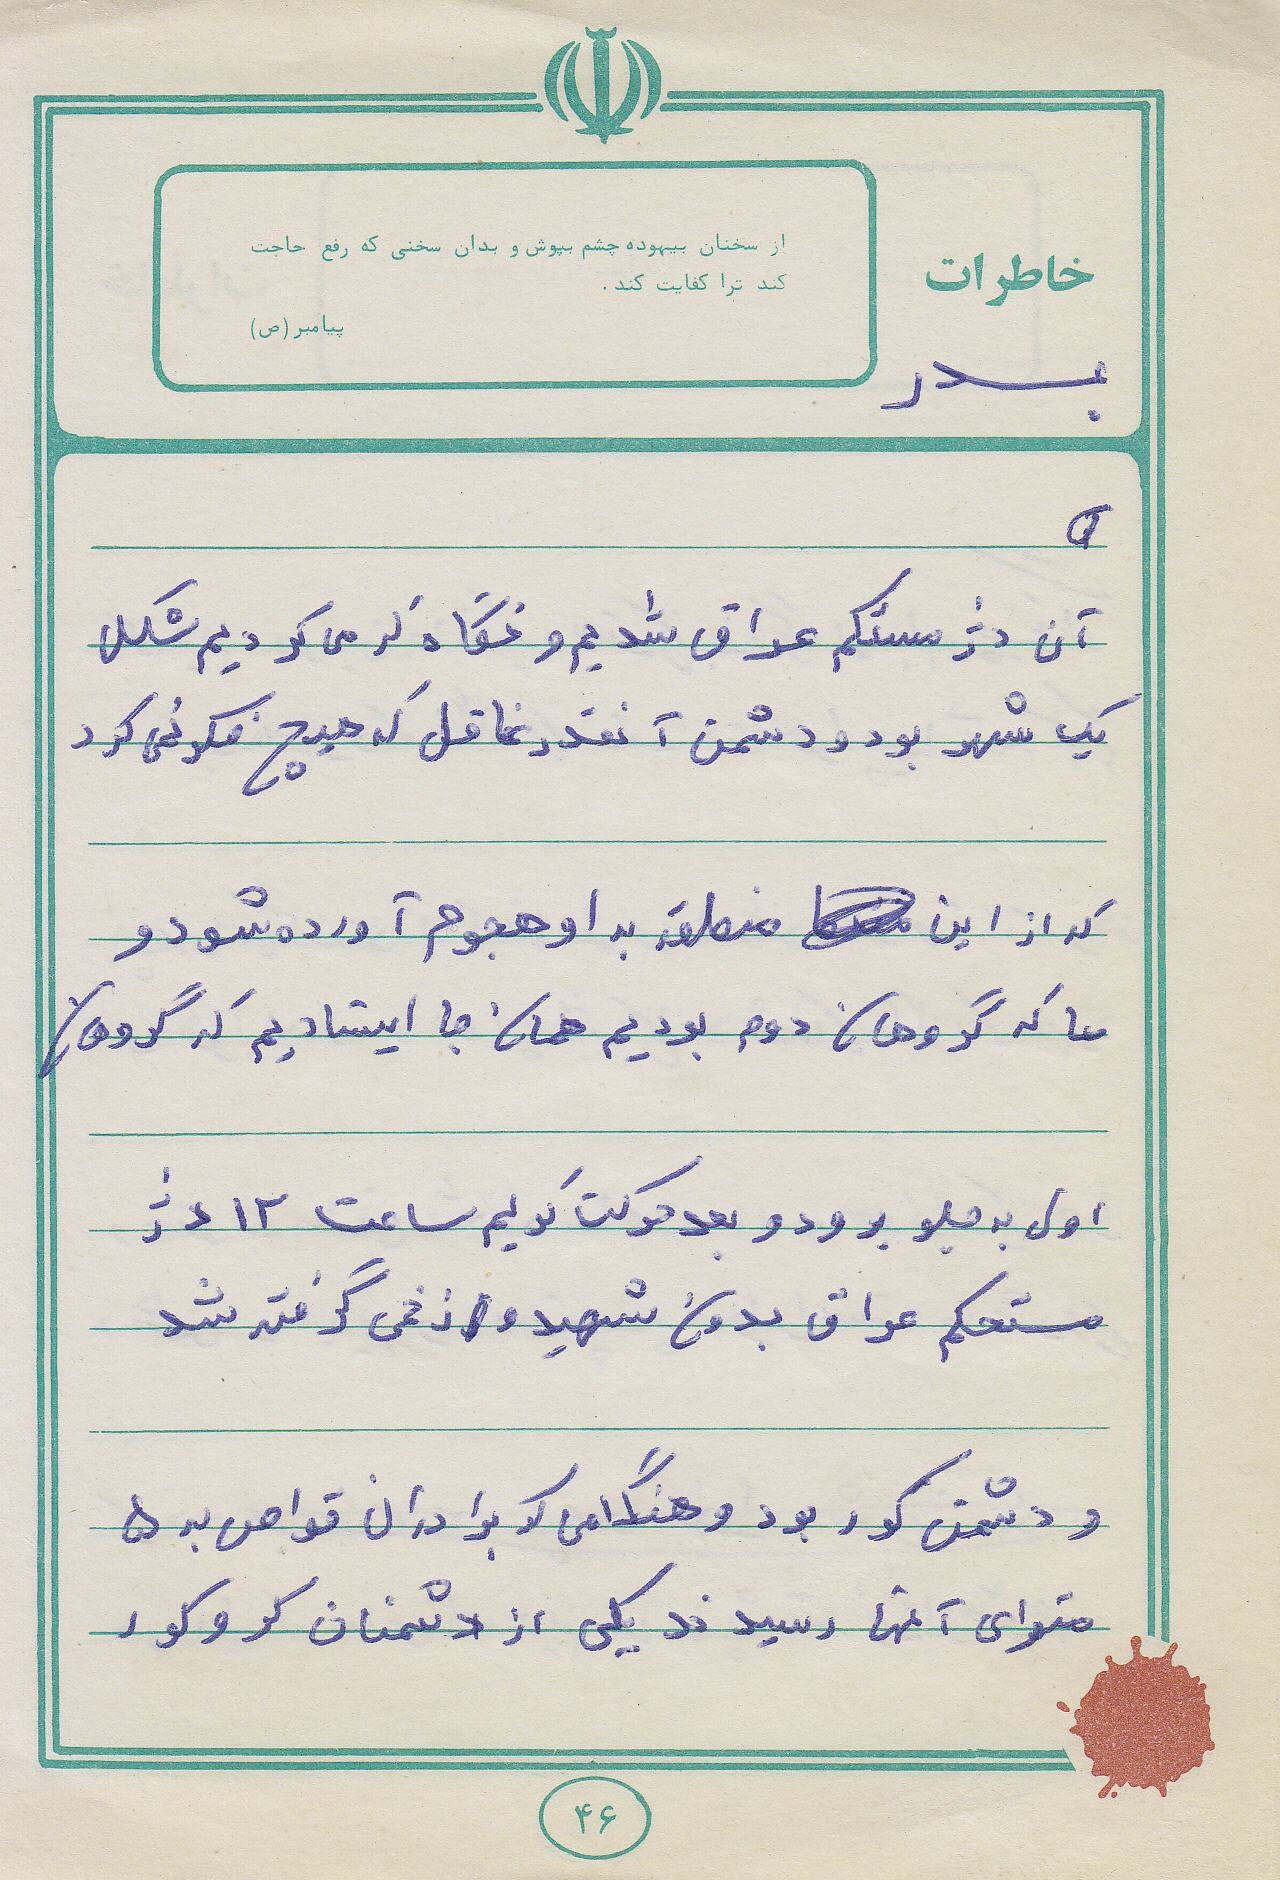 خاطرات
از سخنان بیهوده چشم بپوش و بدان سخنی که رفع حاجت
کند ترا کفایت کند.
پیامبر (ص)
بدر
آن دژ مستکم عراق شدیم و نگاه که می کردیم شکل
یک شهر بود و دشمن آنقدر غافل که هیچ فکر نمی کرد
که از این منطقه به او هجوم آورده شود و
ما که گروهان دوم بودیم همان جا ایستادیم که گروهان
اول به جلو برود و بعد حرکت کنیم ساعت ۱۲ دژ
مستحکم عراق بدون شهید و زخمی گرفته شد
و دشمن کور بود و هنگامی که برادران قواص به ۵
متوای آنها رسیدند یکی از دشمنان کر و کور
۴۶